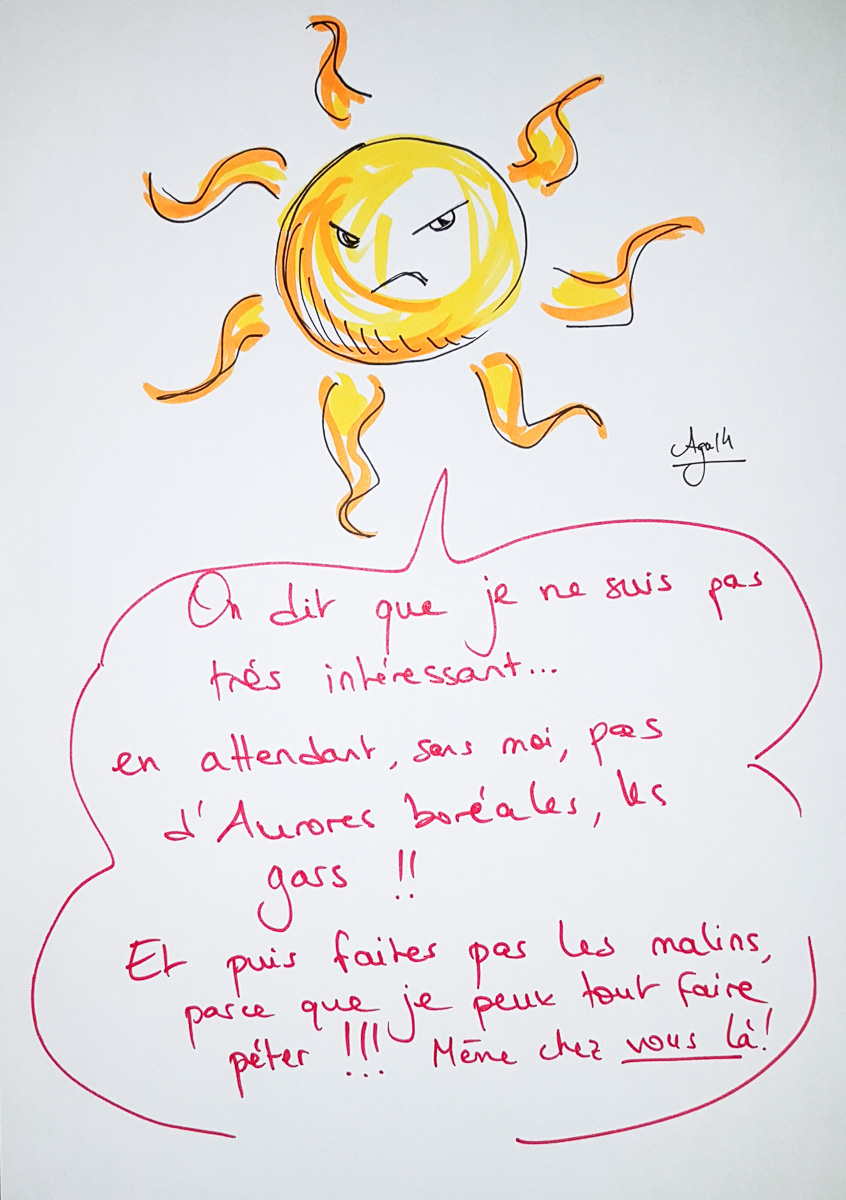 Aga14
On dit que je ne suis pas
trés intéressant...
en attendant, sans moi, pas
d'Aurores boréales, les
gars !!
Et puis faites pas les malins,
parce que je peux tout faire
péter !!! Même chez vous là!